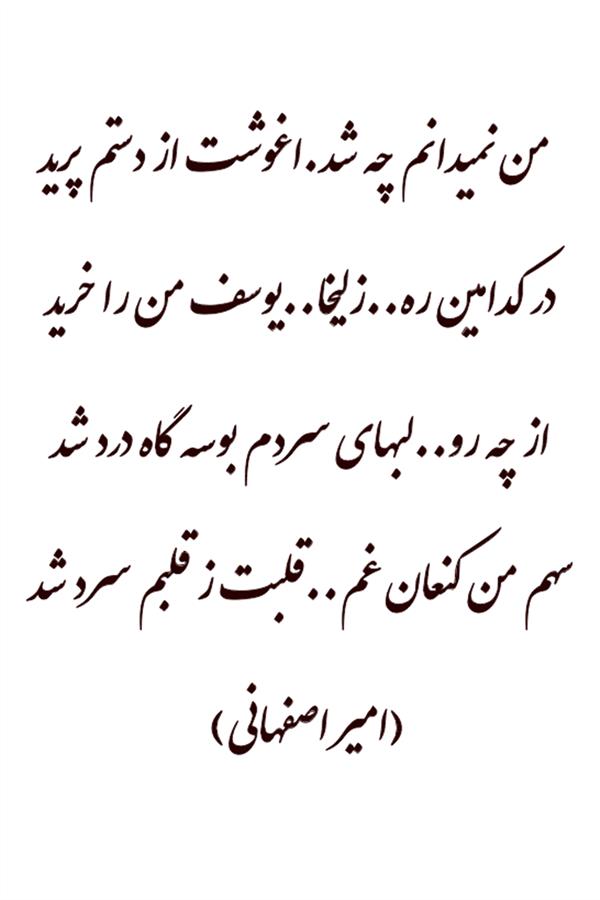 من نمیدانم چه شد.اغوشت از دستم پرید
در کدامین ره..زلیخا..یوسف من را خرید
از چه رو..لبهای سردم بوسه گاه درد شد
سهم من کنعان غم..قلبت ز قلبم سرد شد
(امیر اصفهانی)